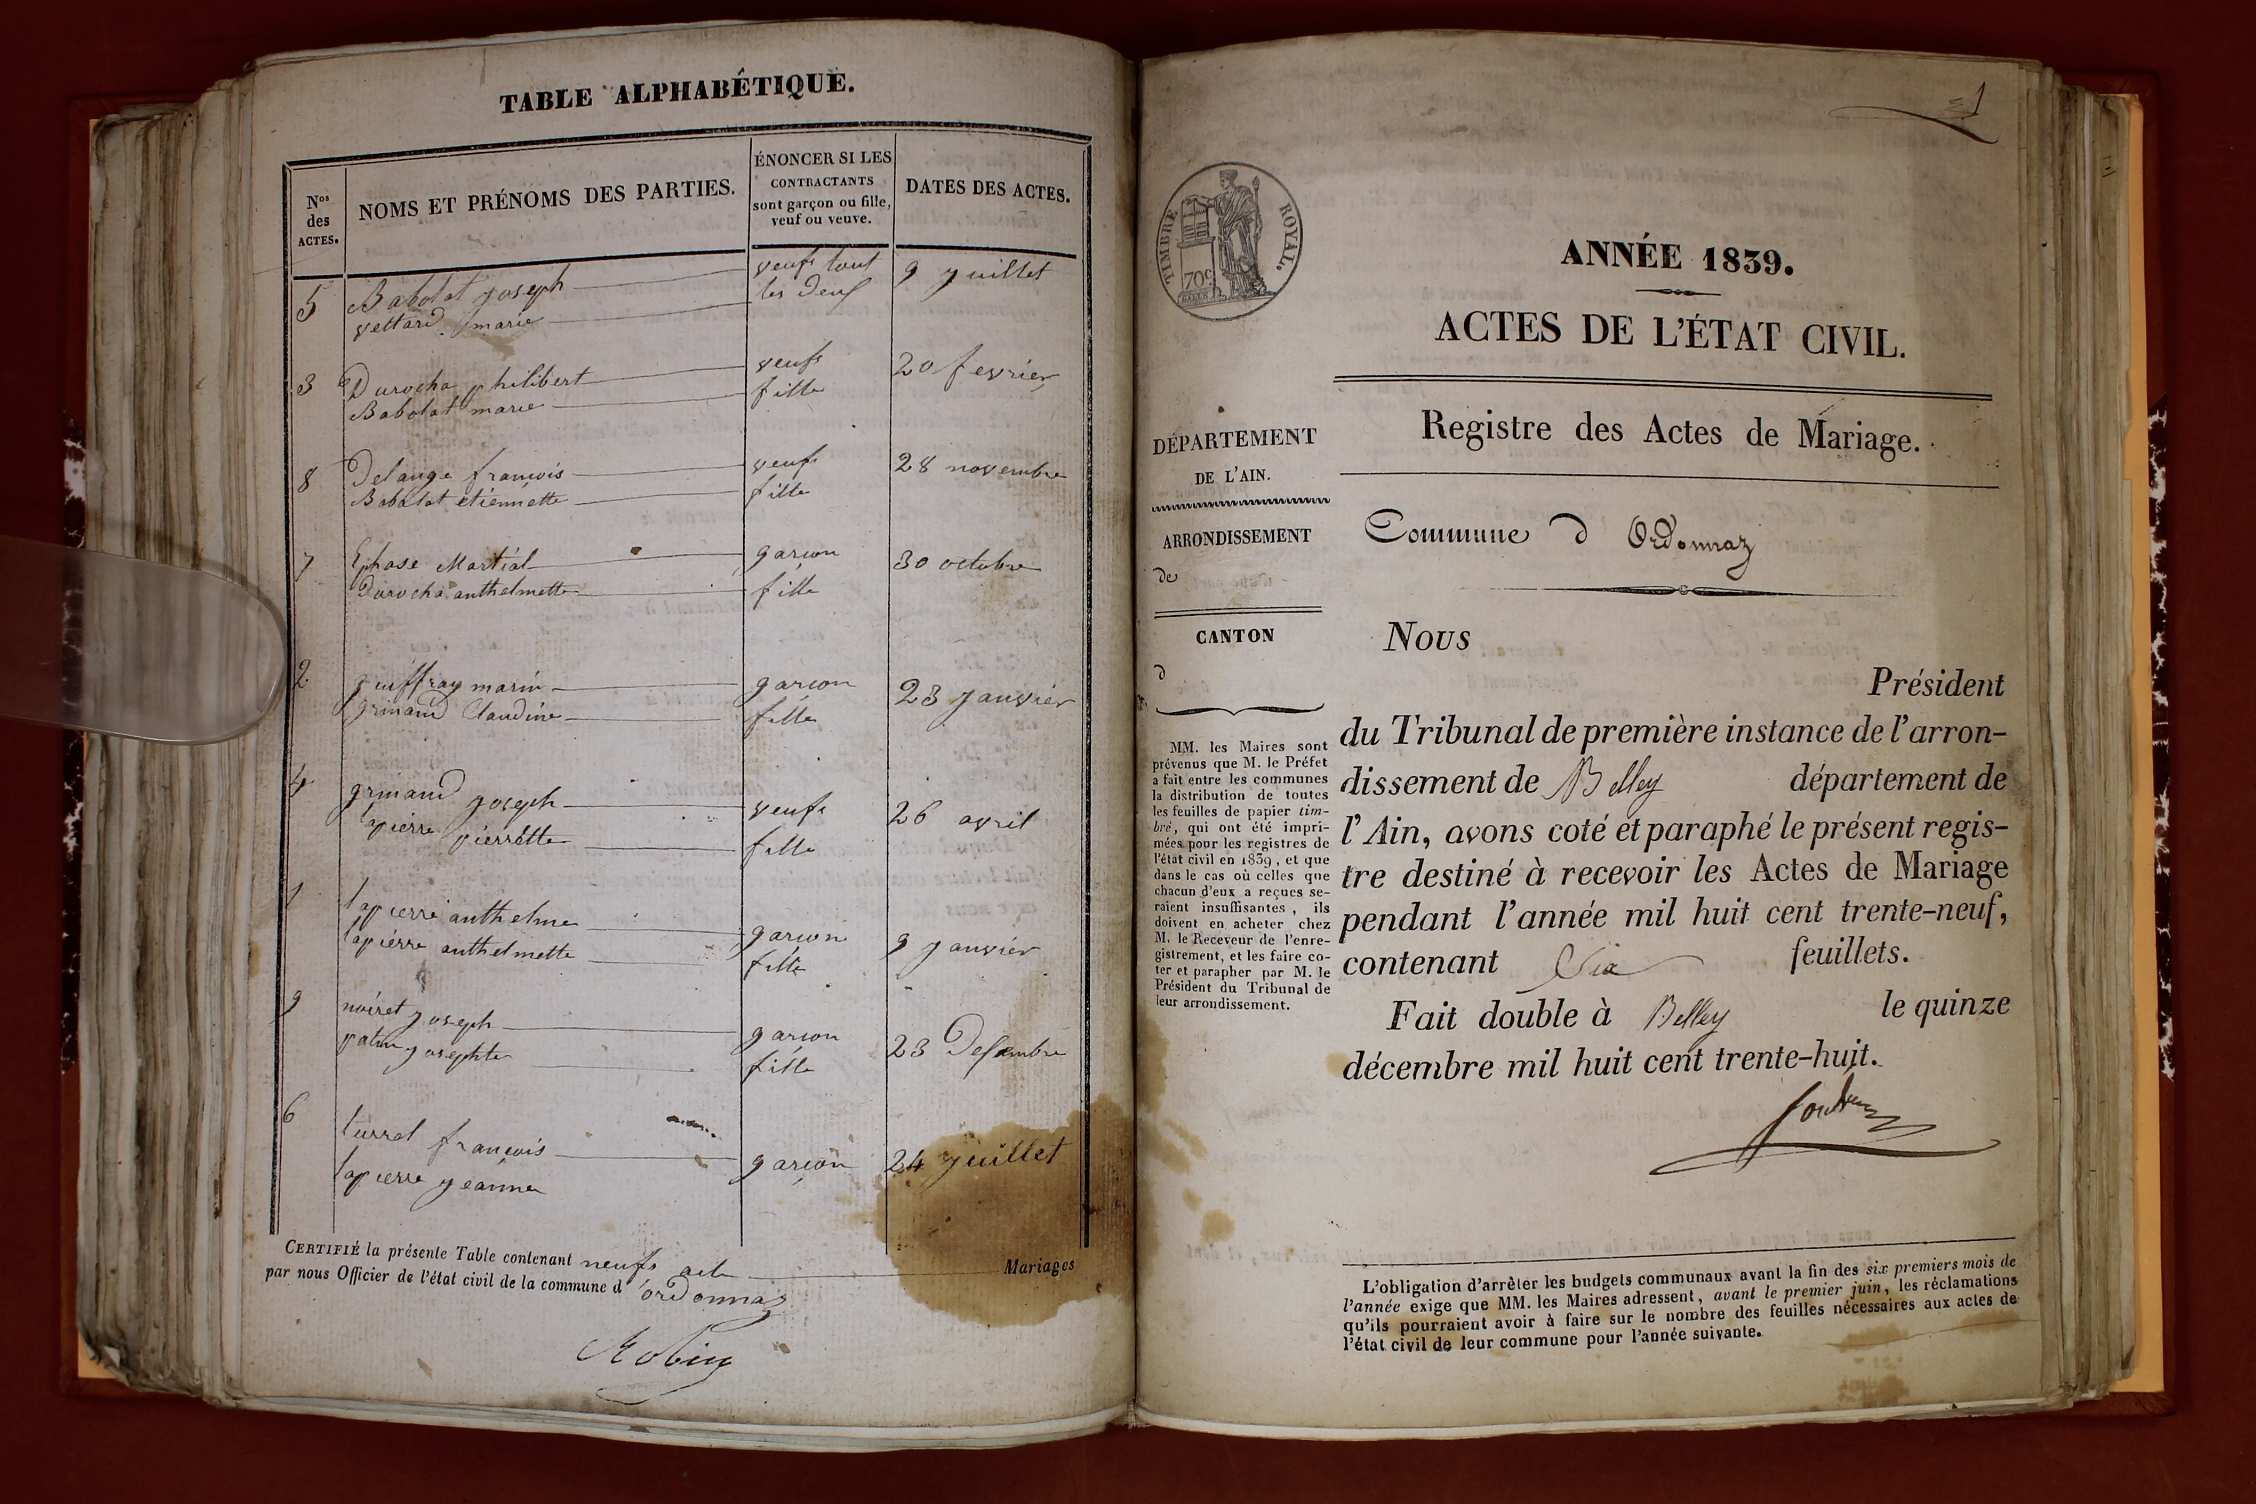 TABLE ALPHABÉTIQUE.
Nos des ACTES.
NOMS ET PRÉNOMS DES PARTIES.
ÉNONCER SI LES CONTRACTANTS sont garçon ou fille, veuf ou veuve.
DATES DES ACTES.
5 Babolat joseph veufs tout 9 juillet
vettard marie les deuf
3 Durocha philibert veufs 20 fevrier
Babolat marie fille
8 Delange francois veufs 28 novembre
Babolat etiennette fille
7 Martial garcon 30 octobre
Durocha anthelmette fille
2 geuffray marin garcon 23 janvier
grinand Claudine fille
4 grinand joseph veufs 26 avril
lapierre pierrette fille
1 lapierre anthelme garcon 9 janvier
lapierre anthelmette fille
9 noiret joseph garcon 23 Desambre
josephte fille
6 turrel francois garcon 24 juillet
lapierre jeanne
CERTIFIÉ la présente Table contenant neufs acte Mariages
par nous Officier de l'état civil de la commune d'ordonnaz
Robin
1
TIMBRE ROYAL.
70c
ANNÉE 1839.
ACTES DE L'ÉTAT CIVIL.
Registre des Actes de Mariage.
DÉPARTEMENT
DE L'AIN.
ARRONDISSEMENT
de
CANTON
d
MM. les Maires sont
prévenus que M. le Préfet
a fait entre les communes
la distribution de toutes
les feuilles de papier tim-
bré, qui ont été impri-
mées pour les registres de
l'état civil en 1839, et que
dans le cas où celles que
chacun d'eux a reçues se-
raient insuffisantes, ils
doivent en acheter chez
M. le Receveur de l'enre-
gistrement, et les faire co-
ter et parapher par M. le
Président du Tribunal de
leur arrondissement.
Commune d Ordonnaz
Nous
Président
du Tribunal de première instance de l'arron-
dissement de Belley département de
l'Ain, avons coté et paraphé le présent regis-
tre destiné à recevoir les Actes de Mariage
pendant l'année mil huit cent trente-neuf,
contenant Six feuillets.
Fait double à Belley le quinze
décembre mil huit cent trente-huit.
L'obligation d'arrêter les budgets communaux avant la fin des six premiers mois de
l'année exige que MM. les Maires adressent, avant le premier juin, les réclamations
qu'ils pourraient avoir à faire sur le nombre des feuilles nécessaires aux actes de
l'état civil de leur commune pour l'année suivante.